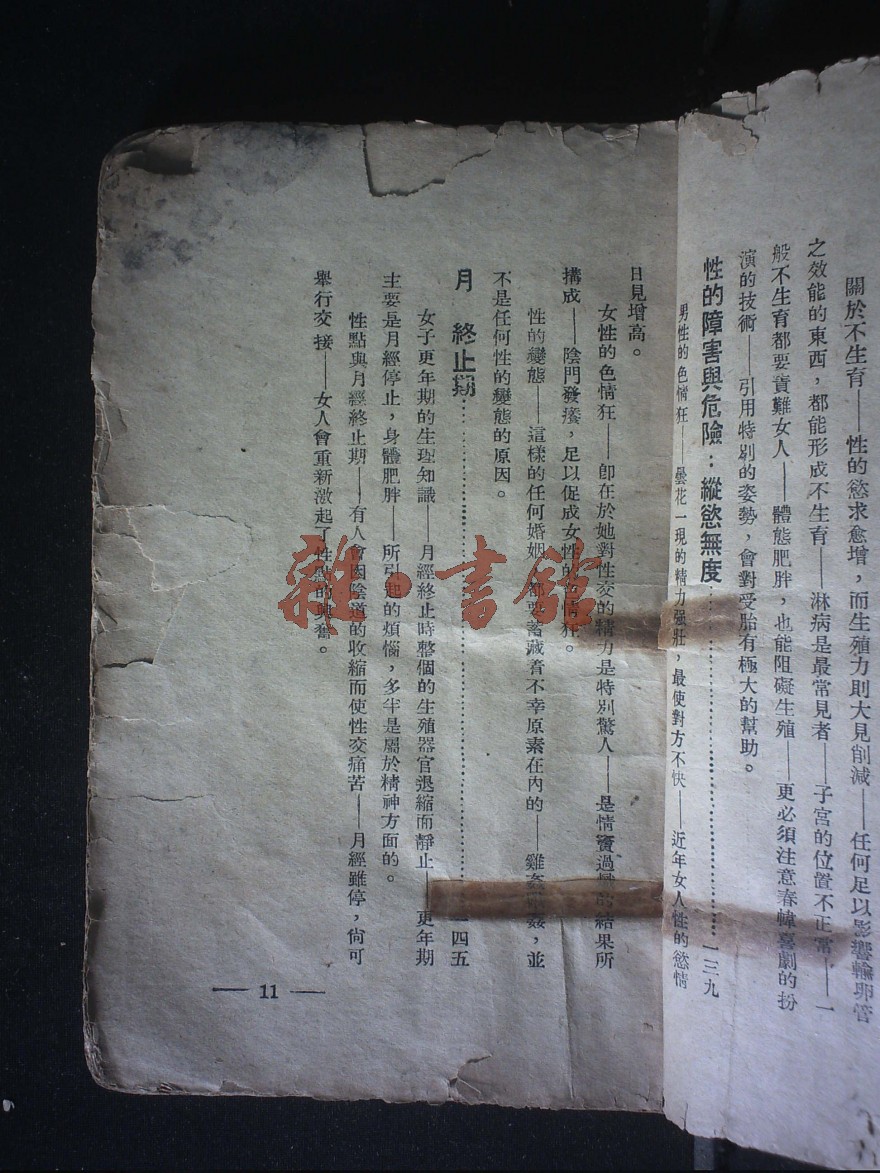 關於不生育——性的慾求愈增，而生殖力則大見削減——任何足以影響輸卵管
之效能的東西，都能形成不生育——淋病是最常見者——子宮的位置不正常——一
般不生育都要責難女人——體態肥胖，也能阻礙生殖——更必須注意春幃喜劇的扮
演的技術——引用特別的姿勢，會對受胎有極大的幫助。
性的障害與危險：縱慾無度……一三九
男性的色情狂——曇花一現的精力强壯，最使對方不快——近年女人性的慾情
日見增高。
女性的色情狂——卽在於她對性交的精力是特別驚人——是情竇過 的結果所
搆成——陰門發癢，足以促成女性的色情狂。
性的變態——這樣的任何婚姻，都要蓄藏着不幸原素在內的——雞姦 姦，並
不是任何性的變態的原因。
月 終止期……一四五
女子更年期的生理知識——月經終止時整個的生殖器官退縮而靜止——更年期
主要是月經停止，身體肥胖——所引起的煩惱，多半是屬於精神方面的。
性點與月經終止期——有人會因陰道的收縮而使性交痛苦——月經雖停，尙可
舉行交接——女人會重新激起了性慾的興奮。
— 11 —
雜·書館